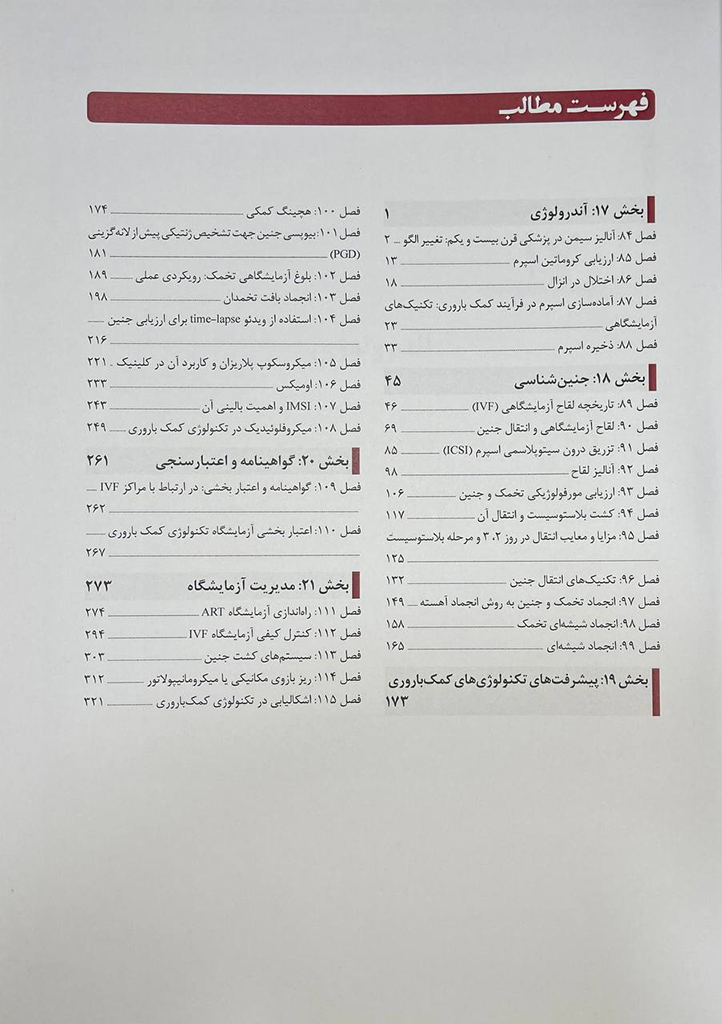 فهرست مطالب
بخش ۱۷: آندرولوژی ۱
فصل ۸۴: آنالیز سیمن در پزشکی قرن بیست و یکم: تغییر الگو ۲
فصل ۸۵: ارزیابی کروماتین اسپرم ۱۳
فصل ۸۶: اختلال در انزال ۱۸
فصل ۸۷: آماده‌سازی اسپرم در فرآیند کمک باروری: تکنیک‌های
آزمایشگاهی ۲۳
فصل ۸۸: ذخیره اسپرم ۳۳
بخش ۱۸: جنین‌شناسی ۴۵
فصل ۸۹: تاریخچه لقاح آزمایشگاهی (IVF) ۴۶
فصل ۹۰: لقاح آزمایشگاهی و انتقال جنین ۶۹
فصل ۹۱: تزریق درون سیتوپلاسمی اسپرم (ICSI) ۸۵
فصل ۹۲: آنالیز لقاح ۹۸
فصل ۹۳: ارزیابی مورفولوژیکی تخمک و جنین ۱۰۶
فصل ۹۴: کشت بلاستوسیست و انتقال آن ۱۱۷
فصل ۹۵: مزایا و معایب انتقال در روز ۲، ۳ و مرحله بلاستوسیست
۱۲۵
فصل ۹۶: تکنیک‌های انتقال جنین ۱۳۲
فصل ۹۷: انجماد تخمک و جنین به روش انجماد آهسته ۱۴۹
فصل ۹۸: انجماد شیشه‌ای تخمک ۱۵۸
فصل ۹۹: انجماد شیشه‌ای ۱۶۵
بخش ۱۹: پیشرفت‌های تکنولوژی‌های کمک‌باروری
۱۷۳
فصل ۱۰۰: هچینگ کمکی ۱۷۴
فصل ۱۰۱: بیوپسی جنین جهت تشخیص ژنتیکی پیش از لانه‌گزینی
(PGD) ۱۸۱
فصل ۱۰۲: بلوغ آزمایشگاهی تخمک: رویکردی عملی ۱۸۹
فصل ۱۰۳: انجماد بافت تخمدان ۱۹۸
فصل ۱۰۴: استفاده از ویدئو time-lapse برای ارزیابی جنین
۲۱۶
فصل ۱۰۵: میکروسکوپ پلاریزان و کاربرد آن در کلینیک ۲۲۱
فصل ۱۰۶: اومیکس ۲۳۳
فصل ۱۰۷: IMSI و اهمیت بالینی آن ۲۴۳
فصل ۱۰۸: میکروفلوئیدیک در تکنولوژی کمک باروری ۲۴۹
بخش ۲۰: گواهینامه و اعتبارسنجی ۲۶۱
فصل ۱۰۹: گواهینامه و اعتبار بخشی: در ارتباط با مراکز IVF
۲۶۲
فصل ۱۱۰: اعتبار بخشی آزمایشگاه تکنولوژی کمک باروری
۲۶۷
بخش ۲۱: مدیریت آزمایشگاه ۲۷۳
فصل ۱۱۱: راه‌اندازی آزمایشگاه ART ۲۷۴
فصل ۱۱۲: کنترل کیفی آزمایشگاه IVF ۲۹۴
فصل ۱۱۳: سیستم‌های کشت جنین ۳۰۳
فصل ۱۱۴: ریز بازوی مکانیکی یا میکرومانیپولاتور ۳۱۲
فصل ۱۱۵: اشکالیابی در تکنولوژی کمک‌باروری ۳۲۱